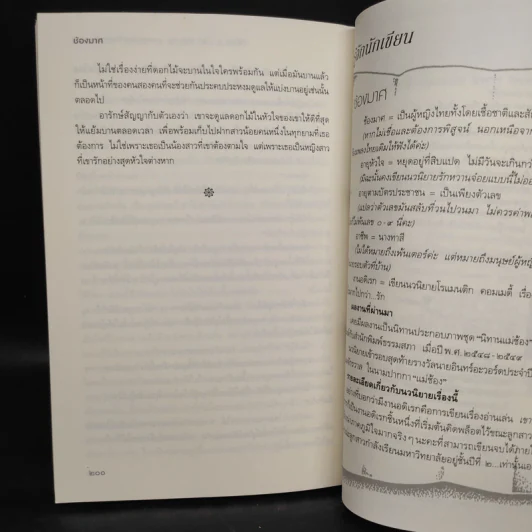 ช่องมาศ
ไม่ใช่เรื่องง่ายที่ดอกไม้จะบานในใจใครพร้อมกัน แต่เมื่อมันบานแล้ว
ก็เป็นหน้าที่ของคนสองคนที่จะช่วยกันประคบประหงมดูแลให้แบ่งบานอยู่เช่นนั้น
ตลอดไป
อารักษ์สัญญากับตัวเองว่า เขาจะดูแลดอกไม้ในหัวใจของเขาให้ดีที่สุด
ให้แย้มบานตลอดเวลา เพื่อพร้อมเก็บไปฝากสาวน้อยคนหนึ่งในทุกยามที่เธอ
ต้องการ ไม่ใช่เพราะเธอเป็นน้องสาวที่เขาต้องตามใจ แต่เพราะเธอเป็นหญิงสาว
ที่เขารักอย่างสุดหัวใจต่างหาก
๒๐๐
นักเขียน
ช่องมาศ
ช้องมาศ = เป็นผู้หญิงไทยทั้งโดยเชื้อชาติและสัญ
(หากไม่เชื่อและต้องการพิสูจน์ นอกเหนือจาก
เพลงไทยเดิมให้ฟังได้ค่ะ)
อายุหัวใจ = หยุดอยู่ที่สิบแปด ไม่มีวันจะเกินกว่า
(มิฉะนั้นคงเขียนนวนิยายรักหวานจ๋อยแบบนี้ไม่ออก
อายุตามบัตรประชาชน = เป็นเพียงตัวเลข
(แปลว่าตัวเลขมันสลับที่วนไปวนมา ไม่ควรค่าพอ
เลข ๐-๙ นี่ค่ะ)
อาชีพ = นางทาสี
(ไม่ได้หมายถึงเพ้นเตอร์ค่ะ แต่หมายถึงมนุษย์ผู้หญิ
ตัวที่บ้าน)
งานอดิเรก = เขียนนวนิยายโรแมนติก คอมเมดี้ เรื่อง
ไปกว่า...รัก
ผลงานที่ผ่านมา
เคยมีผลงานเป็นนิทานประกอบภาพชุด “นิทานแม่ช้อง”
สำนักพิมพ์ธรรมสภา เมื่อปี พ.ศ. ๒๕๔๘-๒๕๔๙
นวนิยายเข้ารอบสุดท้ายรางวัลนายอินทร์อะวอร์ดประจำปี
ในนามปากกา “แม่ช้อง”
รายละเอียดเกี่ยวกับนวนิยายเรื่องนี้
บอกว่ามีงานอดิเรกคือการเขียนเรื่องอ่านเล่น
เป็นงานอดิเรกชิ้นหนึ่งที่เริ่มต้นคิดพล็อตไว้ขณะลูกสาว
ภูมิใจมากจริงๆ นะคะที่สามารถเขียนจบได้ภายใ
ลูกสาวกำลังเรียนมหาวิทยาลัยอยู่ชั้นปีที่ ๒...เท่านั้นเอ